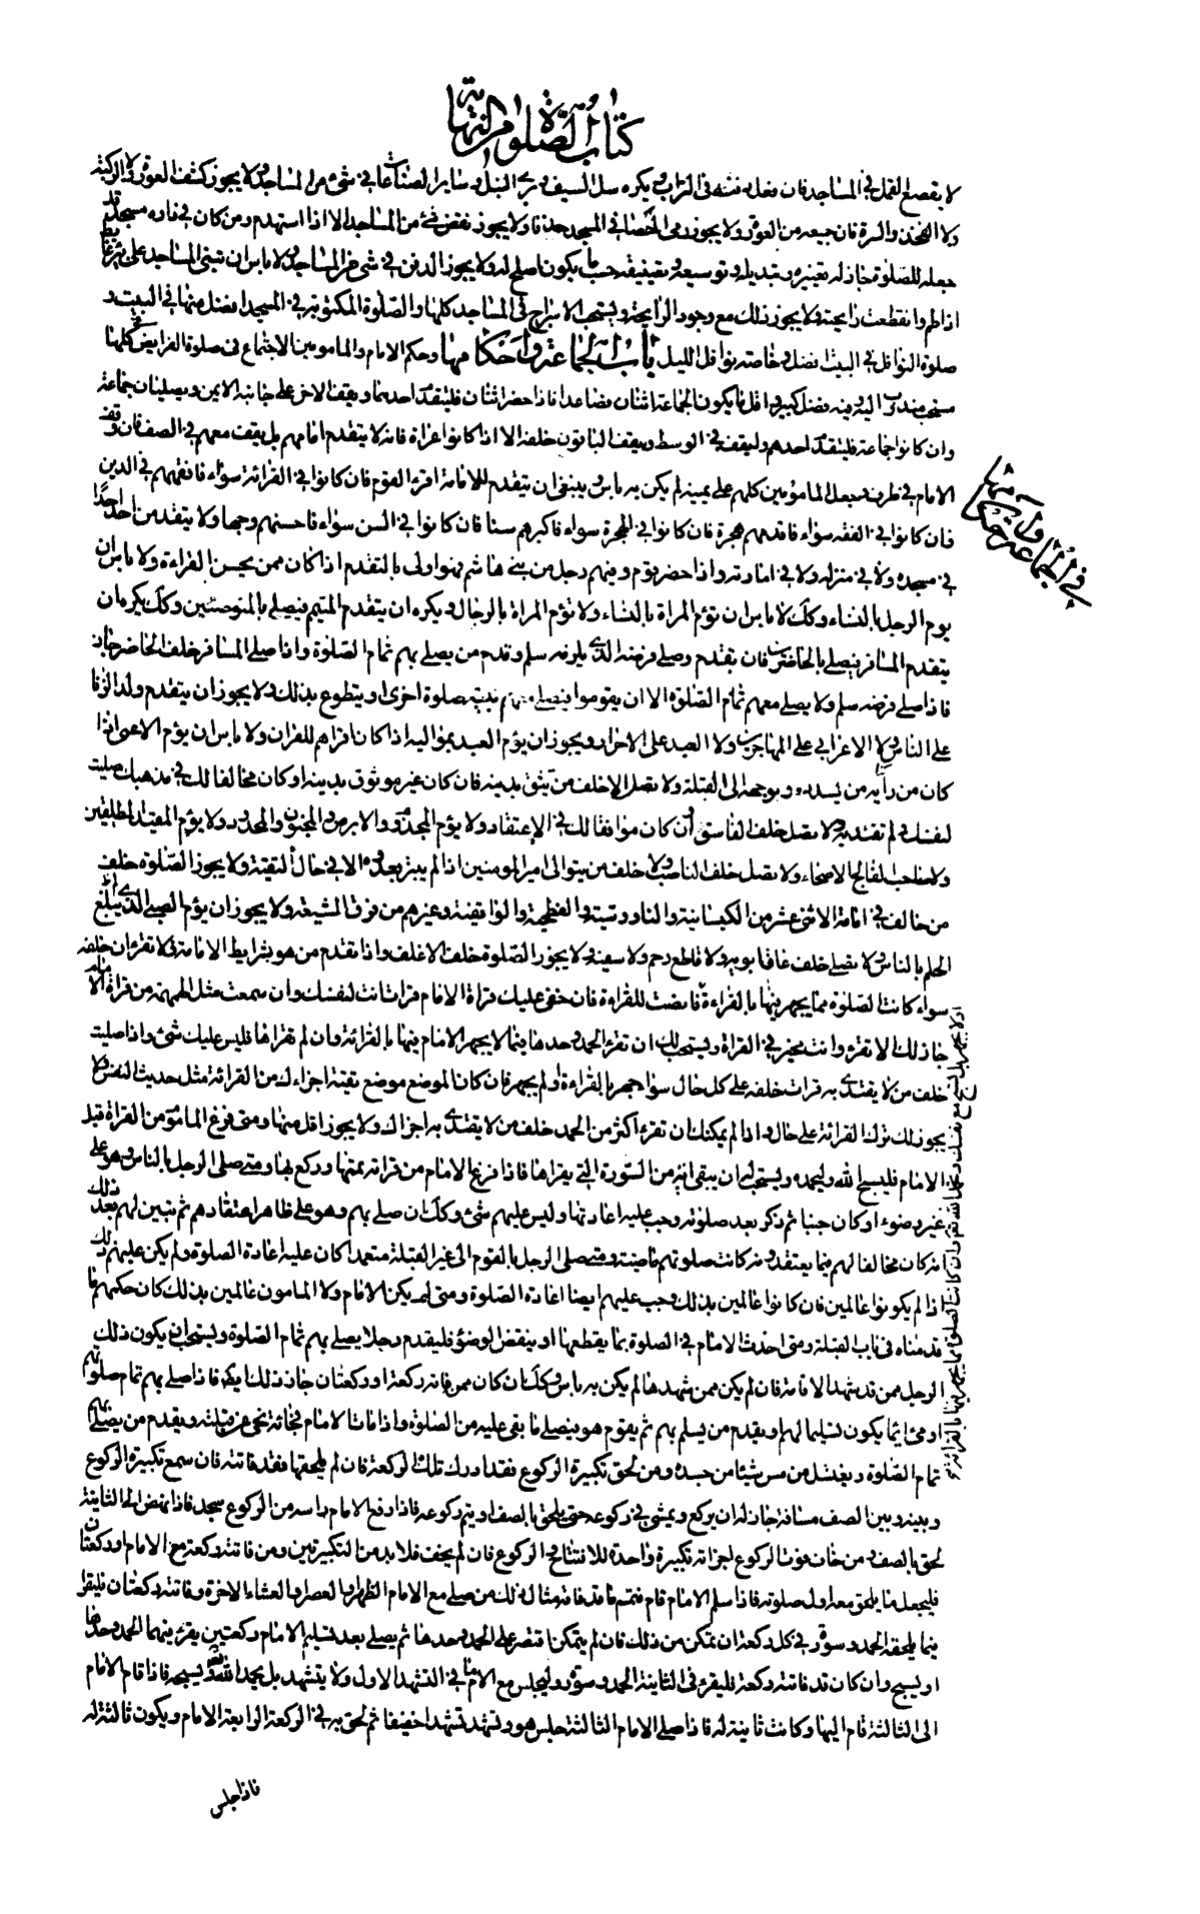 كتاب الصلوة من النهاية
لا يقصع القمل في المساجد فان فعل دفنه في التراب ويكره سل السيف وبري النبل وسائر الصناعات في شئ من المساجد ولا يجوز كشف العورة ولا الركبة
ولا الفخذ والسرة فان جميعه من العورة ولا يجوز رمي الحصا في المسجد حذفا ولا يجوز نقض شئ من المساجد الا اذا استهدم ومن كان في داره مسجد قد
جعله للصلوة جاز له تغييره وتبديله وتوسيعه وتضييقه حسب ما يكون اصلح له ولا يجوز الدفن في شئ من المساجد ولا باس ان تبنى المساجد على بئر غائط
اذا طم وانقطعت رائحته ولا يجوز ذلك مع وجود الرايحة ويستحب الاسراج في المساجد كلها والصلوة المكتوبة في المسجد افضل منها في البيت و
صلوة النوافل في البيت افضل وخاصة نوافل الليل باب الجماعة واحكامها وحكم الامام والمامومين الاجتماع في صلوة الفرايض كلها
مستحب مندوب اليه وفيه فضل كبير واقل ما يكون الجماعة اثنان فصاعدا فاذا حضر اثنان فليتقدم احدهما ويقف الاخر على جانبه الايمن ويصليان جماعة
وان كانوا جماعة فليتقدم احدهم وليقف في الوسط ويقف الباقون خلفه الا اذا كانوا عراة فانه لا يتقدم امامهم بل يقف معهم في الصف فان وقف
الامام في طرف وجعل المامومين كلهم على يمينه لم يكن به باس وينبغي ان يتقدم للامامة اقرء القوم فان كانوا في القرائة سواء فافقههم في الدين
فان كانوا في الفقه سواء فاقدمهم هجرة فان كانوا في الهجرة سواء فاكبرهم سنا فان كانوا في السن سواء فاحسنهم وجها ولا يتقدمن احد احدا
في مسجده ولا في منزله ولا في امارته واذا حضر قوم وفيهم رجل من بني هاشم فهو اولى بالتقدم اذا كان ممن يحسن القراءة ولا باس ان
يوم الرجل بالنساء وكك لا باس ان تؤم المراة بالنساء ولا تؤم المراة بالرجال ويكره ان يتقدم المتيمم فيصلي بالمتوضئين وكك يكره ان
يتقدم المسافر فيصلي بالحاضرين فان تقدم وصلى فرضه الذي يلزمه سلم وقدم من يصلي بهم تمام الصلوة واذا صلى المسافر خلف الحاضر جاز
فاذا صلى فرضه سلم ولا يصلي معهم تمام الصلوة الا ان يقوموا فيصلي معهم بنية صلوة اخرى او يتطوع بذلك ولا يجوز ان يتقدم ولد الزنا
على الناس ولا الاعرابي على المهاجرين ولا العبد على الاحرار ويجوز ان يؤم العبد بمواليه اذا كان اقراهم للقران ولا باس ان يؤم الاعمى اذا
كان من ورائه من يسدده ويوجهه الى القبلة ولا تصل الا خلف من تثق بدينه فان كان غير موثوق بدينه او كان مخالفا لك في مذهبك صليت
لنفسك ولم تقتد به ولا تصل خلف الفاسق وان كان موافقا لك في الاعتقاد ولا يؤم المجذوم والابرص والمجنون والمحدود ولا يؤم المقيد المطلقين
ولا صاحب الفالج الاصحاء ولا تصل خلف الناصب ولا خلف من يتوالى امير المومنين اذا لم يتبرء من عدوه الا في حال التقية ولا يجوز الصلوة خلف
من خالف في امامة الاثنى عشر من الكيسانية والناووسية والفطحية والواقفة وغيرهم من فرق الشيعة ولا يجوز ان يؤم الصبي الذي لم يبلغ
الحلم بالناس ولا تصلي خلف عاق ابويه ولا قاطع رحم ولا سفيه ولا يجوز الصلوة خلف الاغلف واذا تقدم من هو بشرايط الامامة فلا تقرءن خلفه
سواء كانت الصلوة مما يجهر فيها بالقراءة فانصت للقراءة فان خفي عليك قراة الامام قرات انت لنفسك وان سمعت مثل الهمهمة من قراة الامام
جاز لك الا تقرء وانت مخير في القراة ويستحب لك ان تقرء الحمد وحدها فيما لا يجهر الامام فيها بالقرائة وان لم تقراها فليس عليك شئ واذا صليت
خلف من لا يقتدى به قرات خلفه على كل حال سواء جهر بالقراءة او لم يجهر فان كان الموضع موضع تقية اجزاءك من القرائة مثل حديث النفس ولا
يجوز لك ترك القرائة على حال واذا لم يمكنك ان تقرء اكثر من الحمد خلف من لا يقتدى به اجزاك ولا يجوز اقل منها ومتى فرغ المامو من القراة قبل
الامام فليسبح الله وليحمده ويستحب له ان يبقى اية من السورة التي يقراها فاذا فرغ الامام من قراته تمتها وركع بها ومتى صلى الرجل بالناس وهو على
غير وضوء او كان جنبا ثم ذكر بعد صلوته وجب عليه اعادتها وليس عليهم شئ وكك ان صلى بهم وهو على ظاهر اعتقادهم ثم تبين لهم بعد ذلك
انه كان مخالفا لهم فيما يعتقدونه كانت صلوتهم ماضية ومتى صلى الرجل بالقوم الى غير القبلة متعمدا كان عليه اعادة الصلوة ولم يكن عليهم ذلك
اذا لم يكونوا عالمين فان كانوا عالمين بذلك وجب عليهم ايضا اعادة الصلوة ومتى لم يكن الامام ولا المامون عالمين بذلك كان حكمهم ما
قدمناه في باب القبلة ومتى احدث الامام في الصلوة بما يقطعها او ينقض الوضوء فليقدم رجلا يصلي بهم تمام الصلوة ويستحب ان يكون ذلك
الرجل ممن قد شهد الاقامة فان لم يكن ممن شهدها لم يكن به باس وكك ان كان ممن فاته ركعة او ركعتان جاز ذلك ايضا فاذا صلى بهم تمام صلوتهم
اومئ ايماء يكون تسليما لهم او يقدم من يسلم بهم ثم يقوم هو فيصلي ما بقي عليه من الصلوة واذا مات الامام فجائة نحي عن قبلته ويقدم من يصلي بهم
تمام الصلوة ويغتسل من مس شيئا من جسده ومن لحق تكبيرة الركوع فقد ادرك تلك الركعة فان لم يلحقها فقد فاتته فان سمع تكبيرة الركوع
وبينه وبين الصف مسافة جاز له ان يركع ويمشي في ركوعه حتى يلحق بالصف او يتم ركوعه فاذا رفع الامام راسه من الركوع سجد فاذا نهض الى الثانية
لحق بالصف ومن خاف فوت الركوع اجزاته تكبيرة واحدة للافتتاح والركوع فان لم يخف فلا بد من التكبيرتين ومن فاتته ركعة مع الامام او ركعتان
فليجعل ما يلحق معه اول صلوته فاذا سلم الامام قام فتمم ما قد فاته مثال ذلك من صلى مع الامام الظهر او العصر او العشاء الاخرة وفاتته ركعتان فليقرا
فيما يلحقه الحمد وسورة في كل ركعة ان تمكن من ذلك فان لم يتمكن اقتصر على الحمد وحدها ثم يصلي بعد تسليم الامام ركعتين يقرء فيهما الحمد وحدها
او يسبح وان كان قد فاتته ركعة فليقرء في الثانية الحمد وسورة وليجلس مع الامام في التشهد الاول ولا يتشهد بل يحمد الله ويسبحه فاذا قام الامام
الى الثالثة قام اليها وكانت ثانية له فاذا صلى الامام الثالثة جلس هو وتشهد تشهدا خفيفا ثم لحق به في الركعة الرابعة للامام ويكون ثالثة له
فاذا جلس
في الجماعة واحكامها
او لا يجهر بل تسبح مع نفسك وتحمد الله تعم وان كانت الصلوة مما يجهر فيها بالقرائة